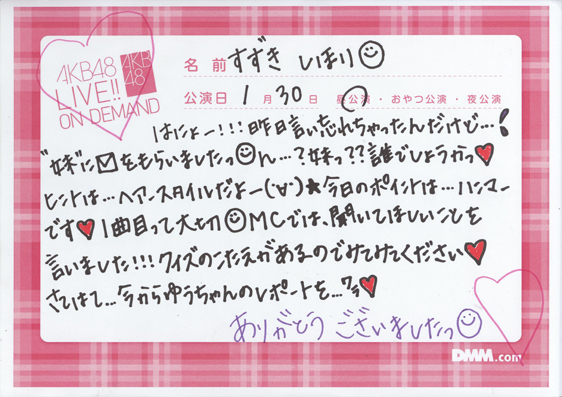 AKB48
LIVE!!
ON DEMAND
AKB
48
名前 すずき しほり
公演日 1月30日 昼公演・おやつ公演・夜公演
はにょー!!!昨日言い忘れちゃったんだけど…!
"妹"に✉をもらいましたっ☺ん…?妹っ??誰でしょうかっ♥
ヒントは…ヘアースタイルだよー(´∀`)★今日のポイントは…ハンマー
です♥1曲目って大切☺MCでは、聞いてほしいことを
言いました!!!クイズのこたえがあるのでみてみてください♥
さてはて…今からゆうちゃんのレポートを…♥
ありがとう ございましたっ☺
DMM.com